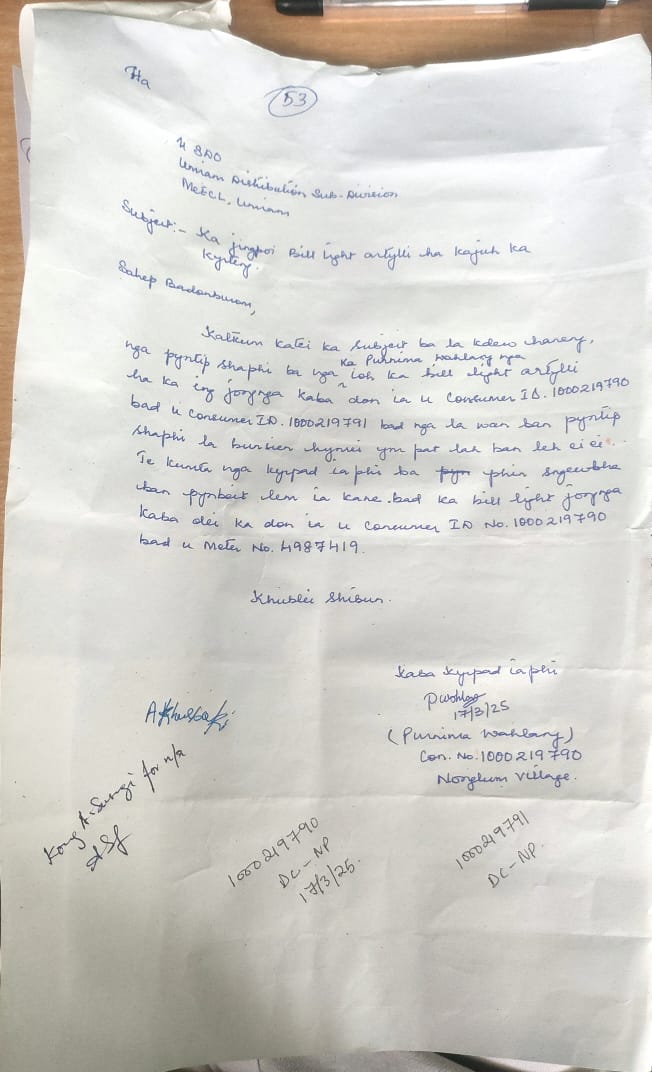 Ha
53
U SDO
Umiam Distribution Sub-Division
MeECL, Umiam
Subject:- Ka jingpoi Bill light artylli ha kajuh ka
kyrteng.
Bahep Badonburom,
Katkum katei ka subject ba la kdew haneng,
nga pyntip shaphi ba nga ka Purnima Wahlang nga ioh ka bill light artylli
ha ka ing jongnga kaba don ia u Consumer ID. 1000219790
bad u Consumer ID. 1000219791 bad nga la wan ban pyntip
shaphi la bunsien hynrei ym pat lah ban leh ei ei.
Te kumta nga kyrpad ia phi ba phin sngewbha
ban pynbeit lem ia kane. bad ka bill light jongnga
kaba dei ka don ia u Consumer ID No. 1000219790
bad u Meter No. 4987419.
Khublei Shibun.
Kaba kyrpad ia phi
17/3/25
(Purnima Wahlang)
Con. No. 1000219790
Nongkum Village.
Kong A. Sungi for n/a
1000219790
DC - NP
17/3/25.
1000219791
DC - NP.